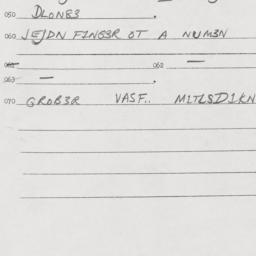 050 DLONE3 .
060 JEJDN F1NG3R OT A NUM3N
062 — 062 —
063 — .
070 GROB3R VASF.. M1TLSD1KN